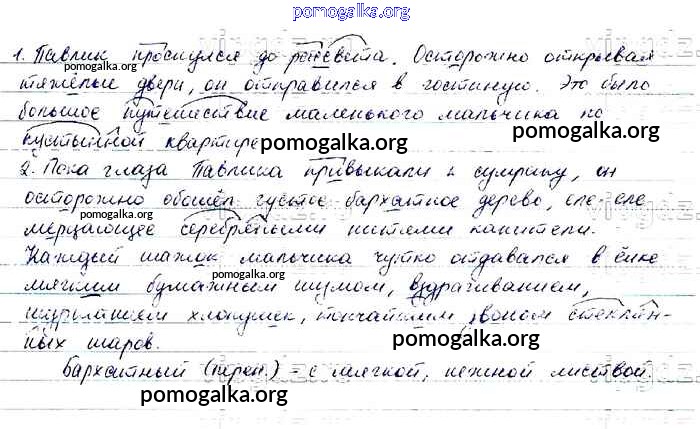 pomogalka.org
1. Павлик проснулся до рассвета. Осторожно открывая
pomogalka.org
pomogalka.org
тяжёлые двери, он отправился в гостиную. Это было
большое путешествие маленького мальчика по
пустынной квартире
pomogalka.org
pomogalka.org
2. Пока глаза Павлика привыкали к сумраку, он
осторожно обошёл густое бархатное дерево, еле-еле
pomogalka.org
мерцающее серебряными нитями канители.
pomogalka.org
Каждый шажок мальчика чутко отдавался в ёлке
pomogalka.org
мягким бумажным шумом, вздрагиванием,
шуршанием хлопушек, тончайшим звоном стеклян-
pomogalka.org
ных шаров.
Бархатный (перен.) - с мягкой, нежной листвой.
pomogalka.org
pomogalka.org